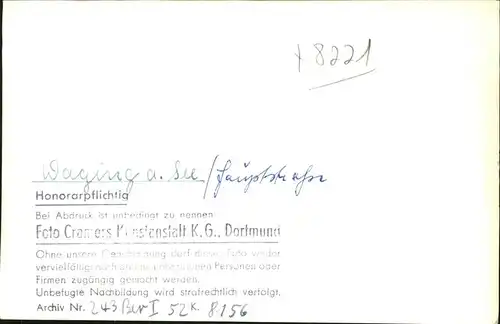 + 8221
Waging a. See / Hauptstraße
Honorarpflichtig
Bei Abdruck ist unbedingt zu nennen
Foto Cramers Kunstanstalt K.G., Dortmund
Ohne unsere Genehmigung darf diese Foto weder
vervielfältigt noch anderen Personen oder
Firmen zugängig gemacht werden.
Unbefugte Nachbildung wird strafrechtlich verfolgt.
Archiv Nr. 243 Ber I 52K 8156